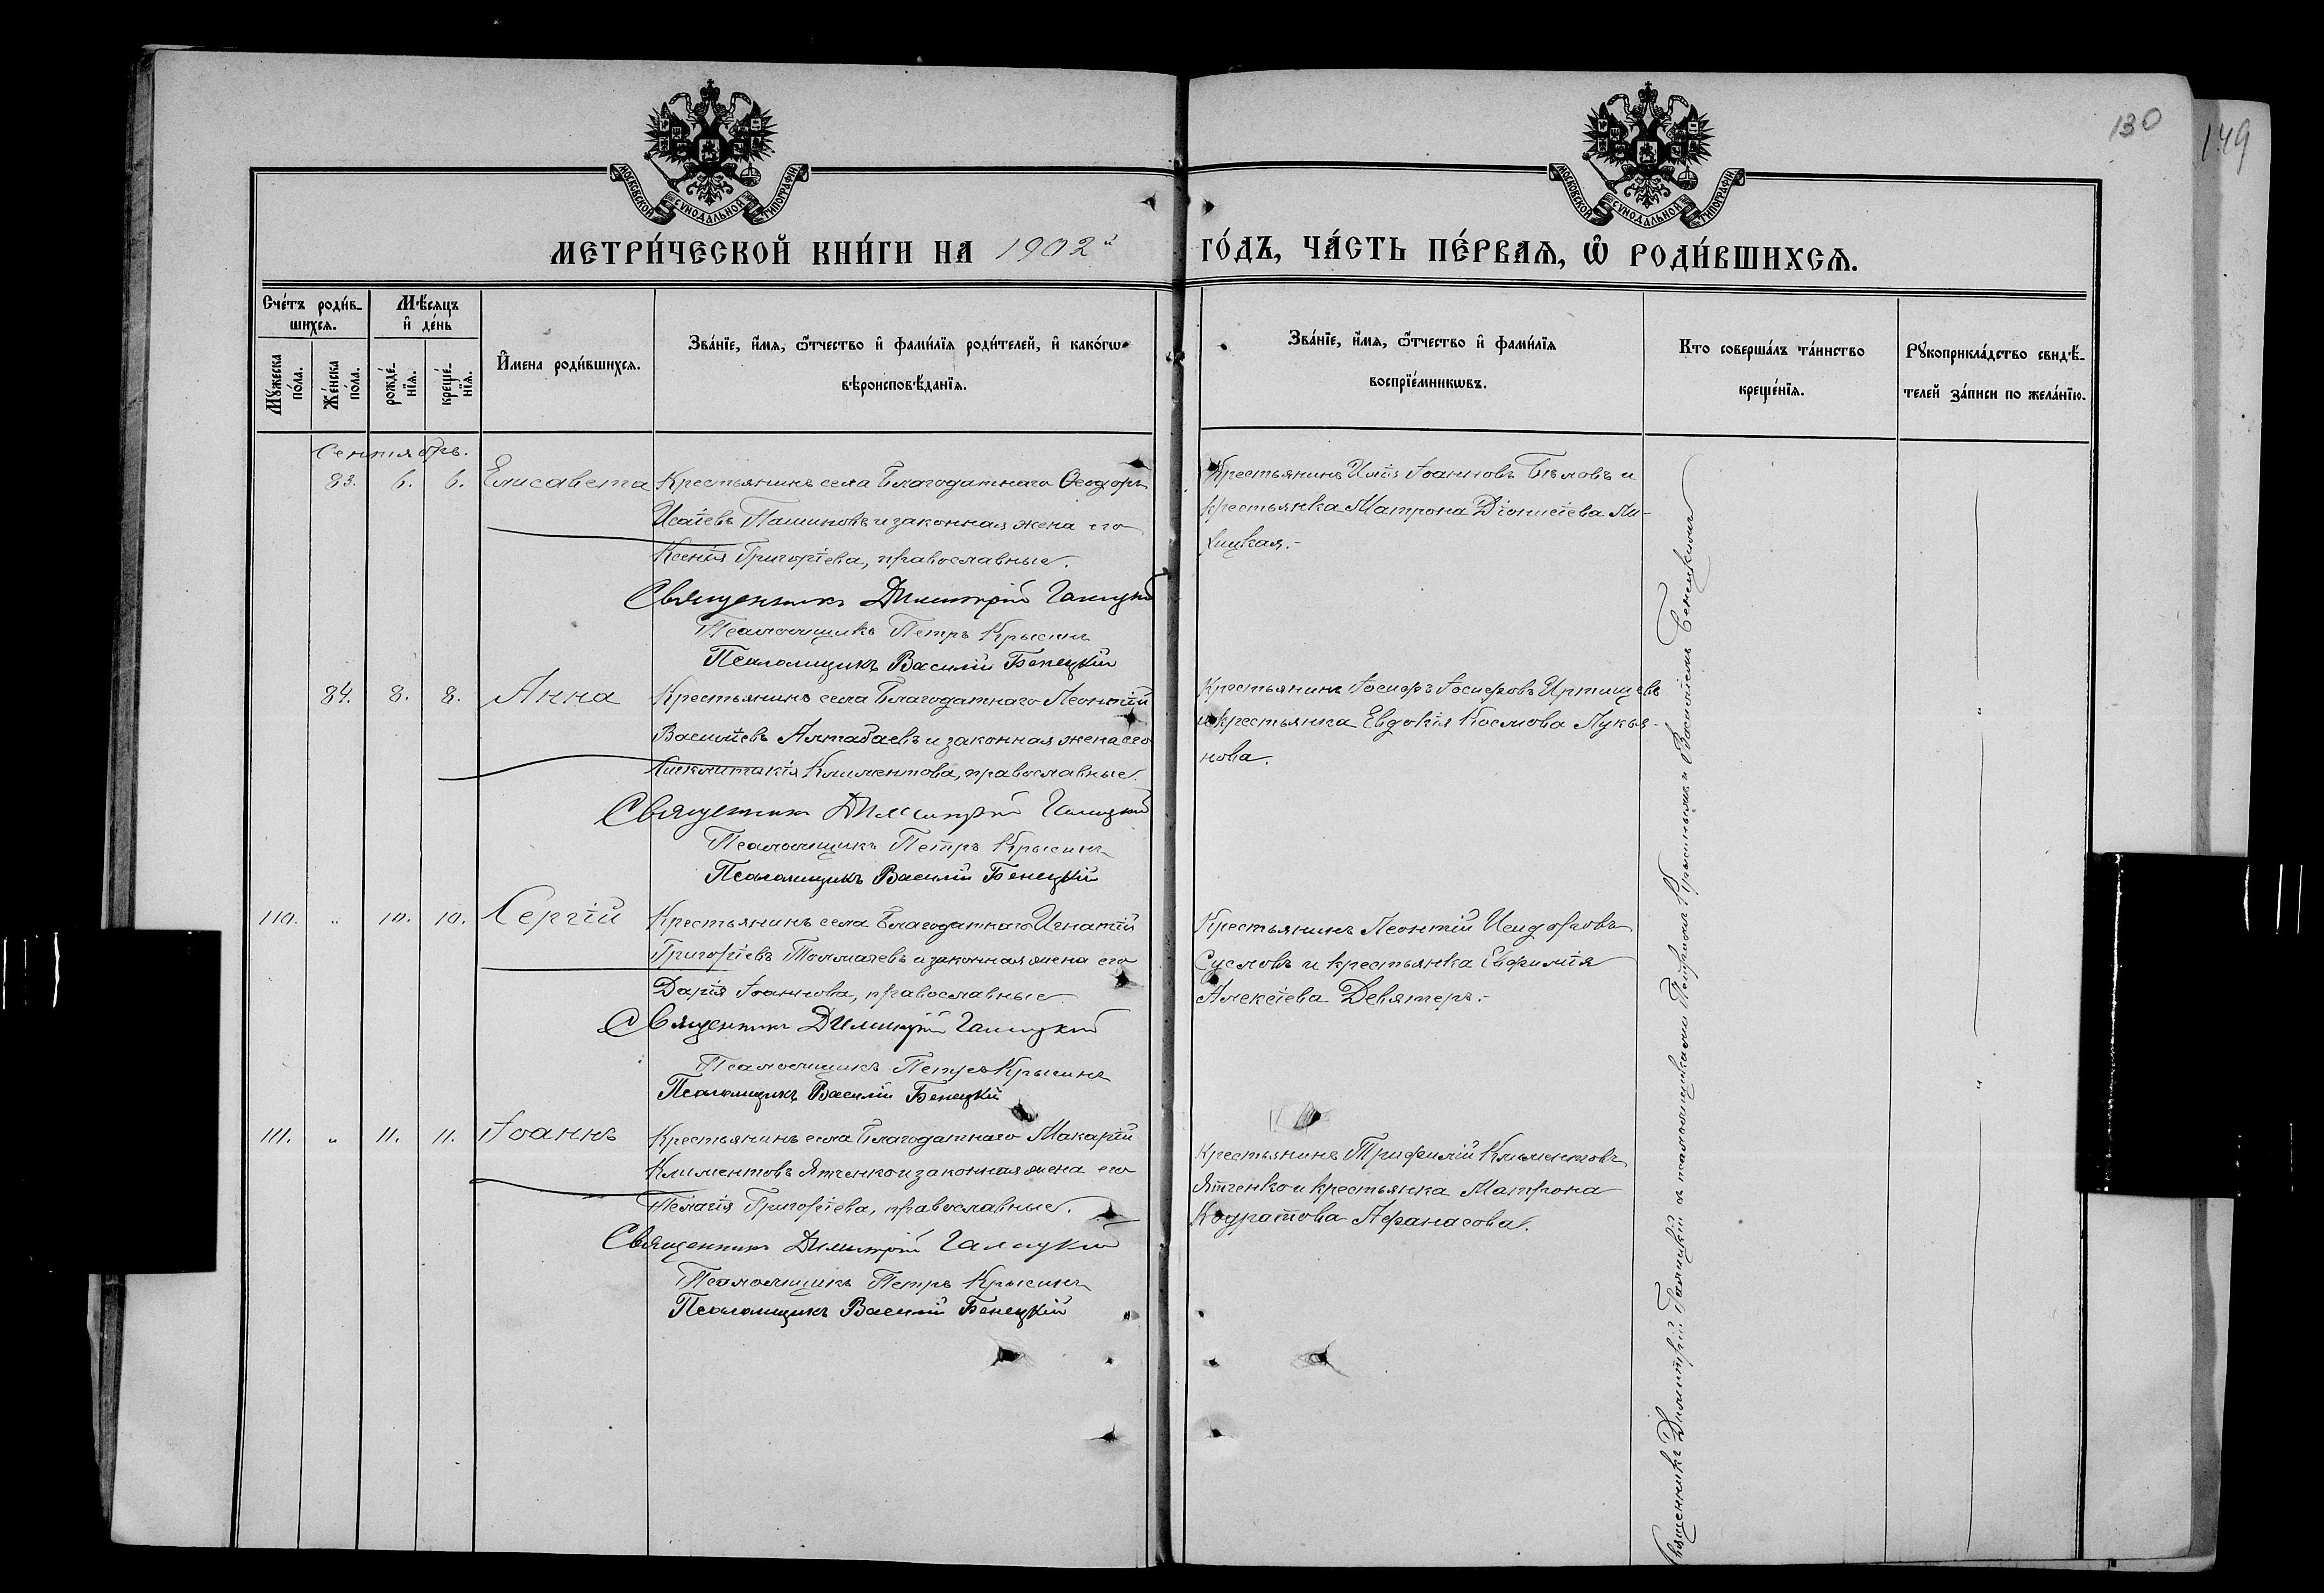 130
149
МОСКОВСКОЙ СѴНОДАЛЬНОЙ ТИПОГРАФІИ
МОСКОВСКОЙ СѴНОДАЛЬНОЙ ТИПОГРАФІИ
МЕТРИ́ЧЕСКОЙ КНИ́ГИ НА 1902й ГО́ДЪ, ЧА́СТЬ ПЕ́РВАѦ, Ѡ҃ РОДИ́ВШИХСѦ.
Сче́тъ роди́в-
шихсѧ.
Мꙋ́жеска по́ла.
Же́нска по́ла.
Мѣ́сѧцъ
и҆ де́нь
рожде́-
нїѧ.
креще́-
нїѧ.
И҆мена роди́вшихсѧ.
Зва́нїе, и҆́мѧ, ѻ҆́тчество и҆ фами́лїѧ роди́телей, и҆ како́гѡ
вѣроисповѣ́данїѧ.
Зва́нїе, и҆́мѧ, ѻ҆́тчество и҆ фами́лїѧ
воспрїе́мникѡвъ.
Кто соверша́лъ та́инство
креще́нїѧ.
Рꙋкоприкла́дство свидѣ́-
телей за́писи по жела́нїю.
Сентябрь.
83. 6. 6. Елисавета
Крестьянинъ села Благодатнаго Ѳеодоръ
Исаіевъ Пашиновъ и законная жена его
Ксенія Григоріева, православные.
Священникъ Димитрій Галицкій
Псаломщикъ Петръ Крысинъ
Псаломщикъ Василій Бенецкій
Крестьянинъ Илія Іоанновъ Бѣловъ и
крестьянка Матрона Діонисіева
84. 8. 8. Анна
Крестьянинъ села Благодатнаго Леонтій
Василіевъ Алтабаевъ и законная жена его
Климентова, православные.
Священникъ Димитрій Галицкій
Псаломщикъ Петръ Крысинъ
Псаломщикъ Василій Бенецкій
Крестьянинъ Іосифъ Іосифовъ Иртищевъ
и крестьянка Евдокія Космова Лукья-
нова.
110. " 10. 10. Сергій
Крестьянинъ села Благодатнаго Игнатій
Григоріевъ Толмачевъ и законная жена его
Дарія Іоаннова, православные.
Священникъ Димитрій Галицкій
Псаломщикъ Петръ Крысинъ
Псаломщикъ Василій Бенецкій
Крестьянинъ Леонтій Исидоровъ
Сусловъ и крестьянка Евфимія
Алексіева Девятерь.-
111. " 11. 11. Іоаннъ
Крестьянинъ села Благодатнаго Макарій
Климентовъ Ятченко и законная жена его
Пелагія Григоріева, православные.
Священникъ Димитрій Галицкій
Псаломщикъ Петръ Крысинъ
Псаломщикъ Василій Бенецкій
Крестьянинъ Трифилій Климентовъ
Ятченко и крестьянка Матрона
Кодратова Афанасова.
Священникъ Димитрій Галицкій съ псаломщиками Петромъ Крысинымъ и Василіемъ Бенецкимъ